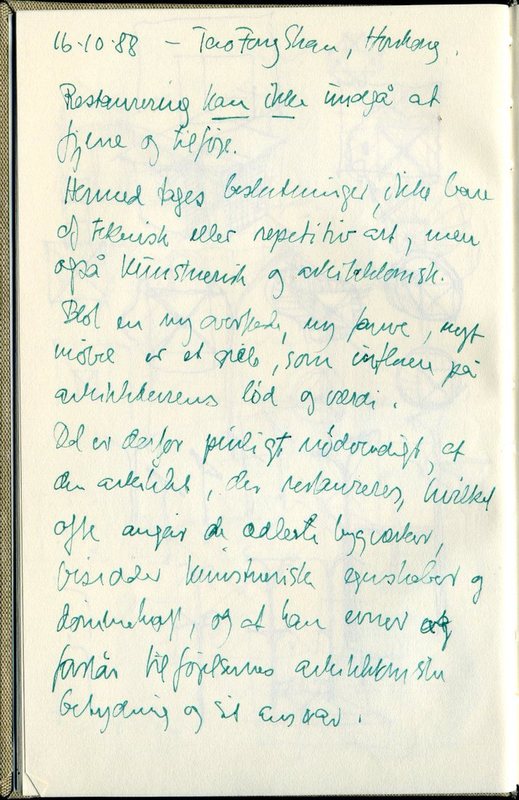 16.10.88 – Tao Fong Shan, Honkong.
Restaurering kan ikke undgå at
fjerne og tilføje.
Hermed tages beslutninger, ikke bare
af teknisk eller repetitiv art, men
også kunstnerisk og arkitektonisk.
Blot en ny overflade, ny farve, nyt
møbel er et , som influere på
arkitekturens lød og værdi.
Det er derfor pinligt nødvendigt, at
den arkitekt, der restaurerer, hvilket
ofte angår de ædleste bygværker,
besidder kunstnerisk egenskaber og
dømmekraft, og at han evner og
forstår tilføjelsernes arkitektoniske
betydning og sit ansvar.